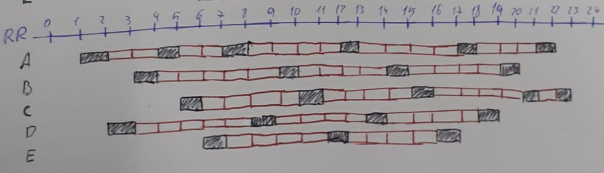 0 1 2 3 4 5 6 7 8 9 10 11 12 13 14 15 16 17 18 19 20 21 22 23 24
RR
A
B
C
D
E